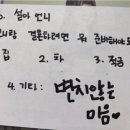 설아 언니
사랑 결혼하려면 뭐 준비해야도
집 2. 차 3. 적금
4. 기타: 변치않는
마음